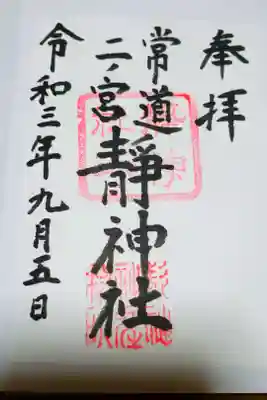 奉拝
常道
二ノ宮
静神社
令和三年九月五日